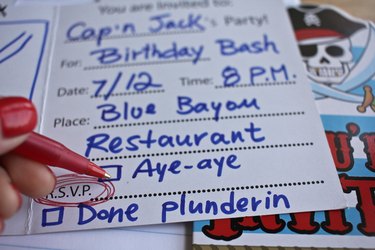 You are invited to:
Cap'n Jack's Party!
For: Birthday Bash
Date: 7/12 Time: 8 P.M.
Place: Blue Bayou
Restaurant
Aye-aye
R.S.V.P.
Done plunderin